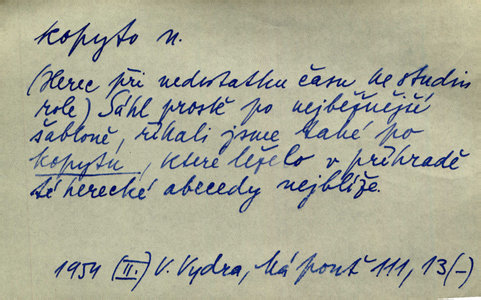 kopyto n.
(Herec při nedostatku času ke studiu
role) Sáhl prostě po nejběžnější
šabloně, říkali jsme také po
kopytu, které leželo v přihradě
té herecké abecedy nejblíže.
1954 (II.) V. Vydra, Má pouť 111, 13(-)